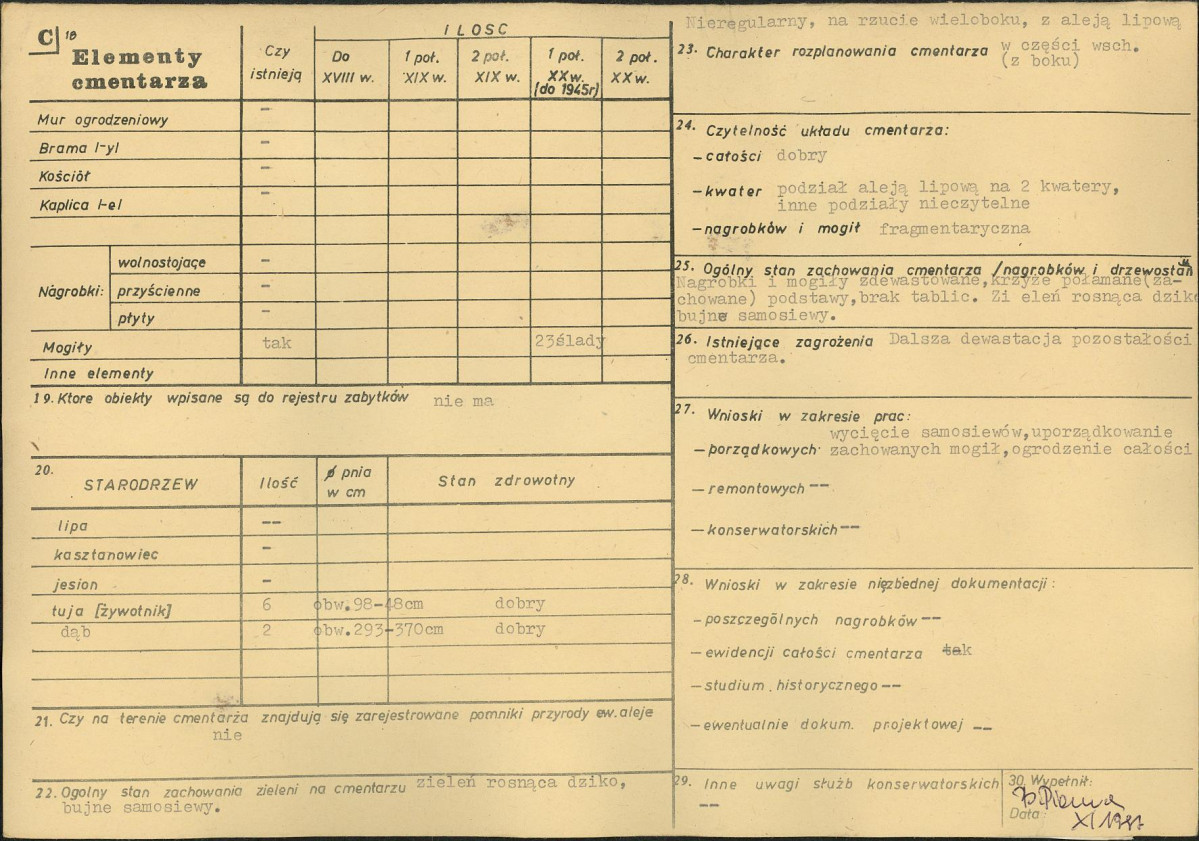 C 18
Elementy
cmentarza
Czy
istnieją
I L O S C
Do
XVIII w.
1 poł.
XIX w.
2 poł.
XIX w.
1 poł.
XX w.
(do 1945r)
2 poł.
XX w.
Mur ogrodzeniowy -
Brama I-yl -
Kościół -
Kaplica I-el -
Nagrobki:
wolnostojące -
przyścienne -
płyty -
Mogiły tak 23ślady
Inne elementy
19. Ktore obiekty wpisane są do rejestru zabytków nie ma
20.
STARODRZEW
Ilość
ø pnia
w cm
Stan zdrowotny
lipa --
kasztanowiec -
jesion -
tuja [żywotnik] 6 obw.98-48cm dobry
dąb 2 obw.293-370cm dobry
21. Czy na terenie cmentarza znajdują się zarejestrowane pomniki przyrody ew. aleje
nie
22. Ogolny stan zachowania zieleni na cmentarzu zieleń rosnąca dziko,
bujne samosiewy.
Nieregularny, na rzucie wieloboku, z aleją lipową
23. Charakter rozplanowania cmentarza w części wsch.
(z boku)
24. Czytelność układu cmentarza:
- całości dobry
- kwater podział aleją lipową na 2 kwatery,
inne podziały nieczytelne
- nagrobków i mogił fragmentaryczna
25. Ogólny stan zachowania cmentarza /nagrobków i drzewostan
Nagrobki i mogiły zdewastowane,krzyże połamane(za-
chowane) podstawy,brak tablic. Zi eleń rosnąca dziko
bujne samosiewy.
26. Istniejące zagrożenia Dalsza dewastacja pozostałości
cmentarza.
27. Wnioski w zakresie prac:
wycięcie samosiewów,uporządkowanie
- porządkowych zachowanych mogił,ogrodzenie całości
- remontowych --
- konserwatorskich --
28. Wnioski w zakresie niezbednej dokumentacji:
- poszczególnych nagrobków --
- ewidencji całości cmentarza tak
- studium historycznego --
- ewentualnie dokum. projektowej --
29. Inne uwagi służb konserwatorskich
--
30. Wypełnił:
Data:
XI 1987